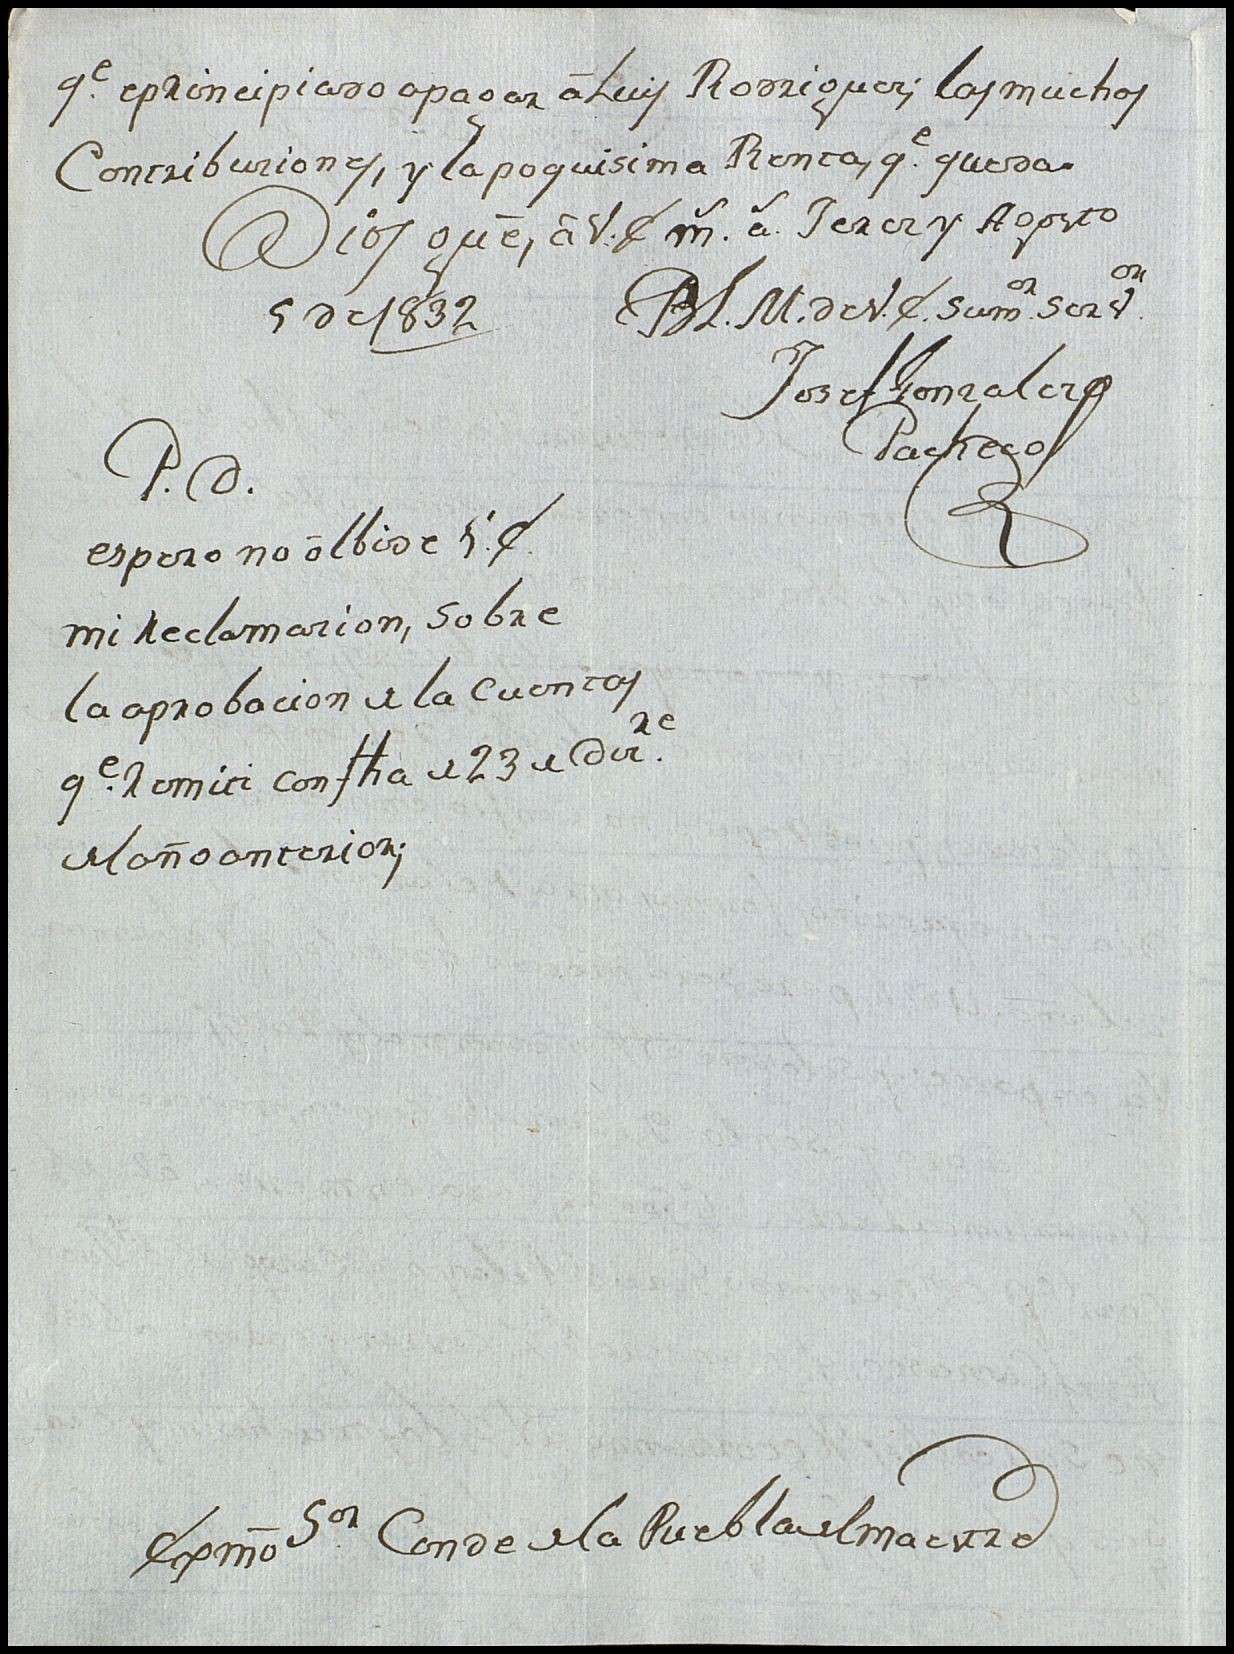 q.e e principiado a pagar â Luis Rodriguez; las muchas
Contribuziones, y la poquisima Renta, q.e queda.
Dios gũe, â V. E. m.s a.s Jerez y Agosto
5 de 1832 B. L. M. de V. E. su m.or Serv.or
Josef Gonzalez
Pacheco
P. D.
espero no ôlbide V. E.
mi Reclamazion, sobre
la aprobacion de la Cuentas
q.e Remiti con fha de 23 de Diz.re
del año anterior;
Exmõ S.or Conde de la Puebla del maestre